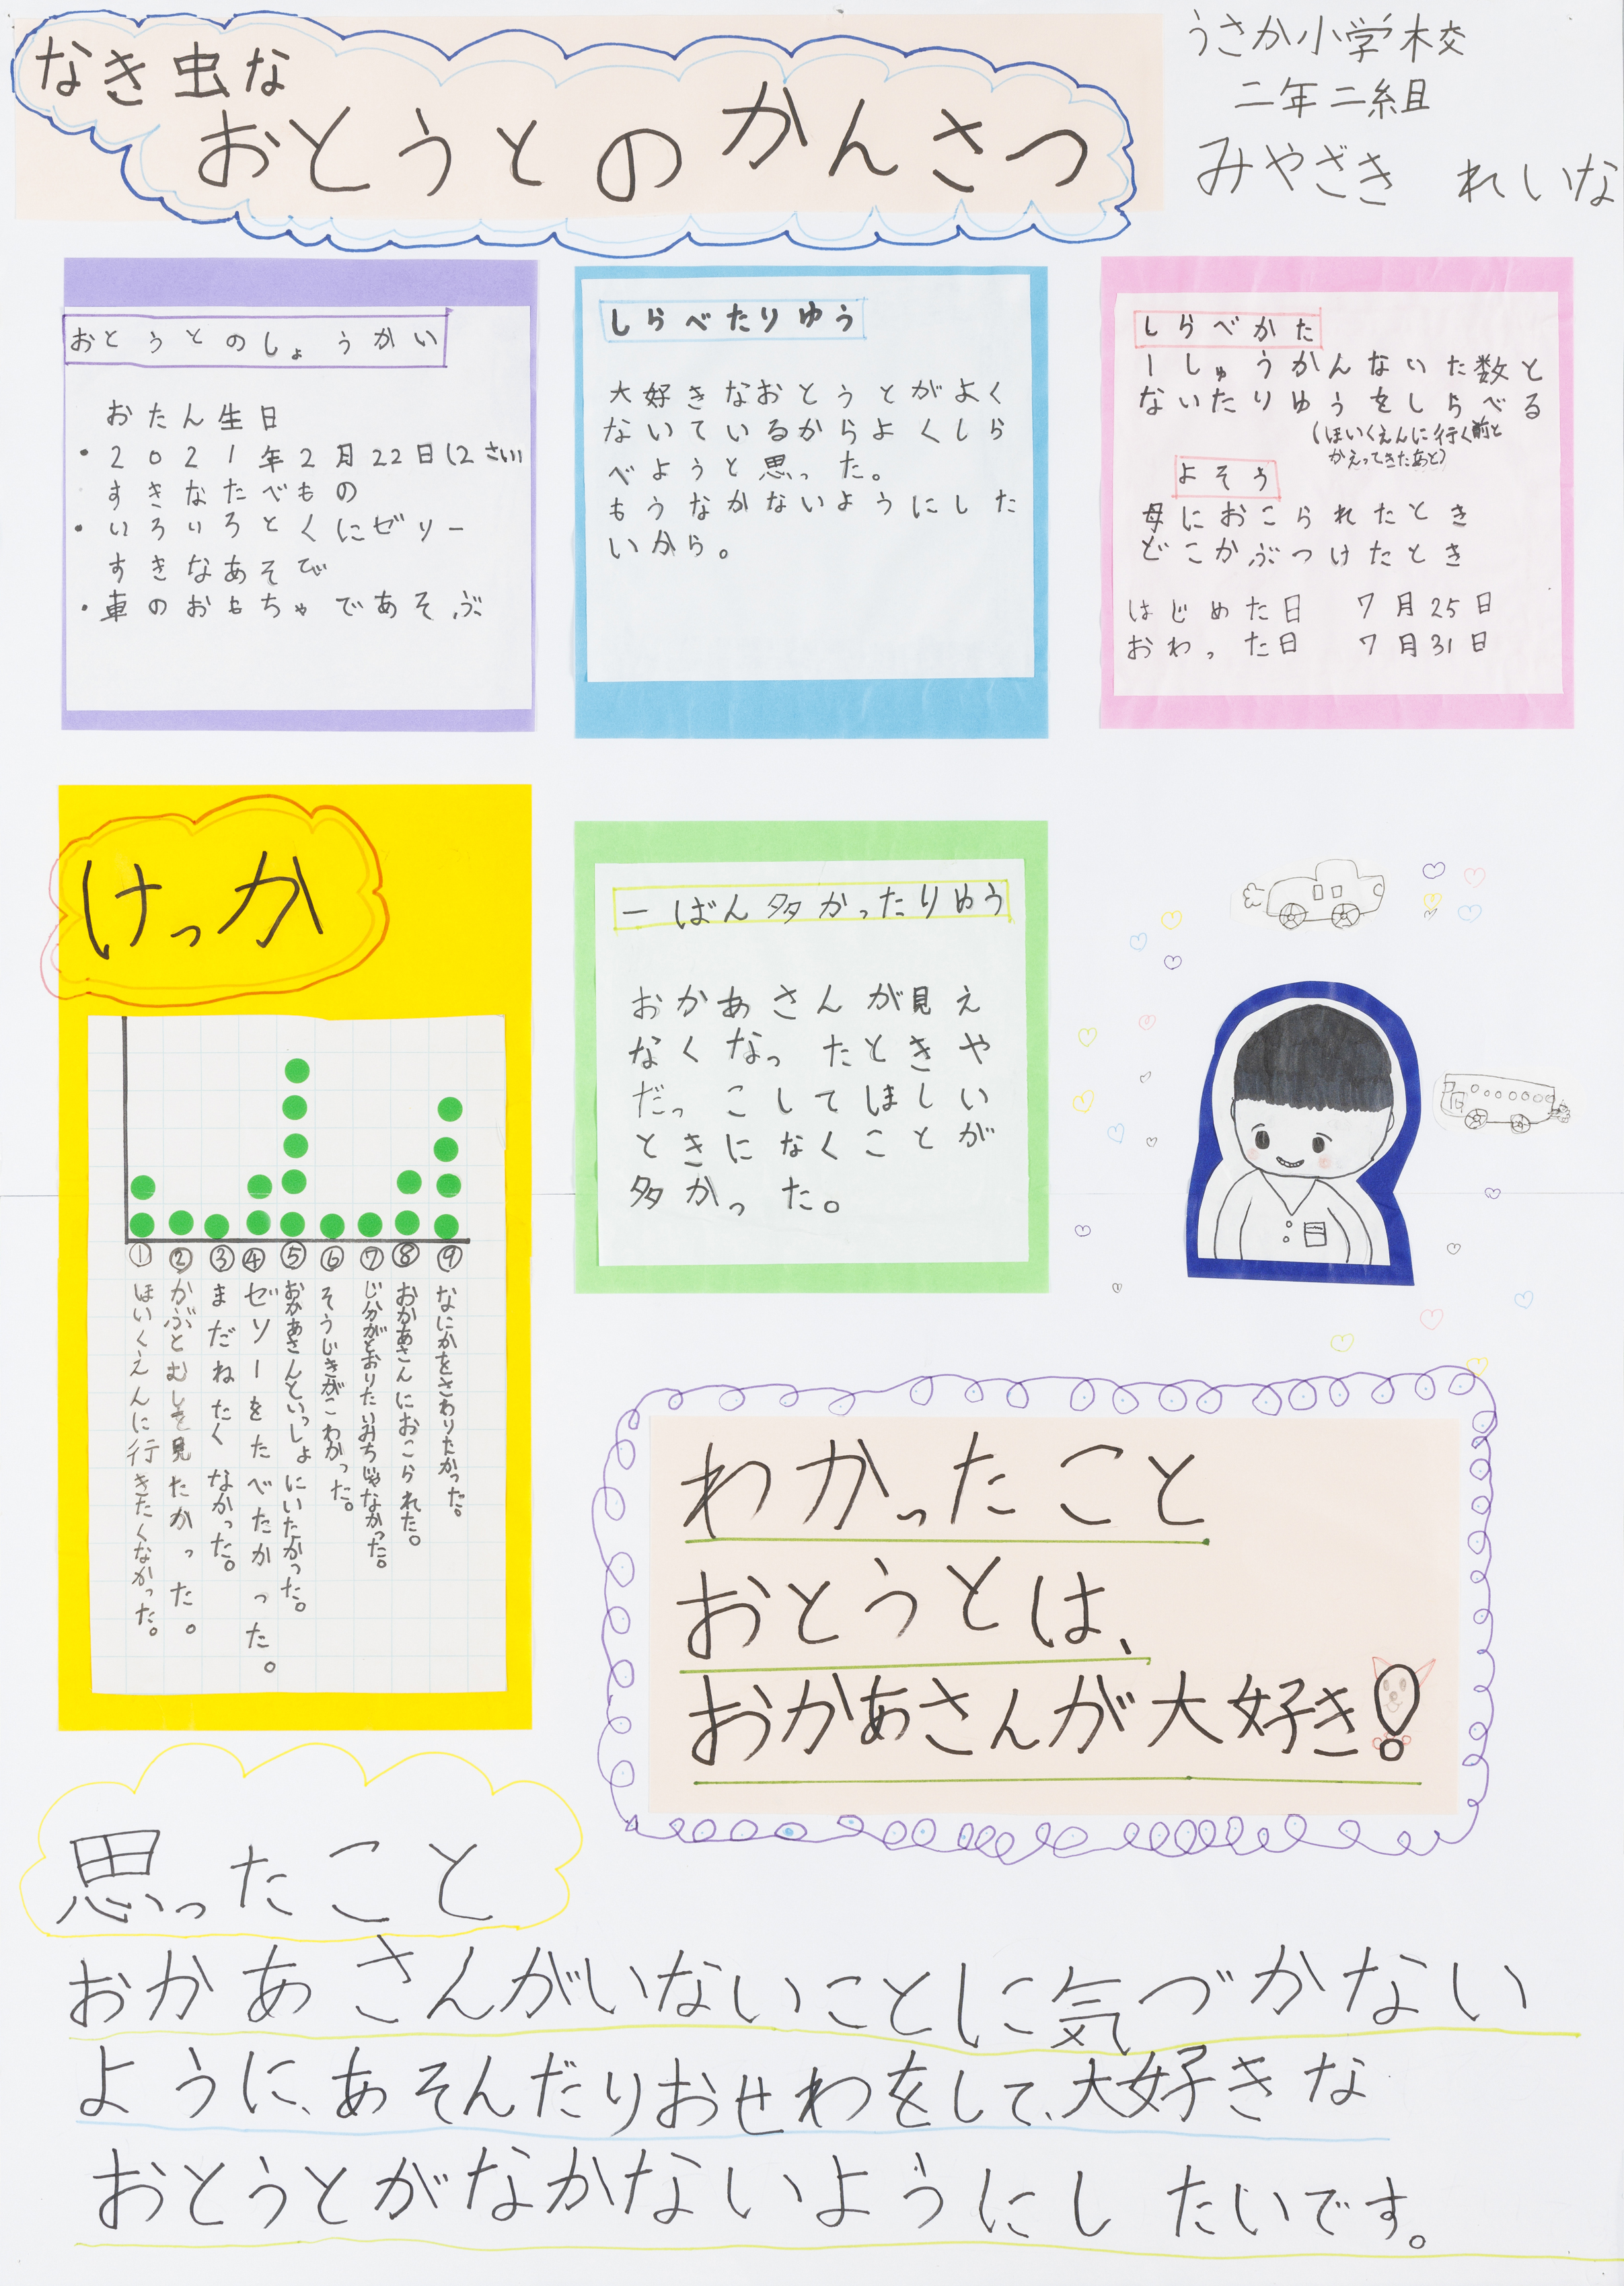 なき虫な
おとうとのかんさつ
うさか小学校
二年二組
みやざき れいな
おとうとのしょうかい
おたん生日
・2021年2月22日(2さい)
すきなたべもの
・いろいろとくにゼリー
すきなあそび
・車のおもちゃであそぶ
しらべたりゆう
大好きなおとうとがよく
ないているからよくしら
べようと思った。
もうなかないようにした
いから。
しらべかた
1しゅうかんないた数と
ないたりゆうをしらべる
(ほいくえんに行く前と
かえってきたあと)
よそう
母におこられたとき
どこかぶつけたとき
はじめた日 7月25日
おわった日 7月31日
けっか
①ほいくえんに行きたくなかった。
②かぶとむしを見たかった。
③まだねたくなかった。
④ゼリーをたべたかった。
⑤おかあさんといっしょにいたかった。
⑥そうじきがこわかった。
⑦じ分がとおりたいみちじゃなかった。
⑧おかあさんにおこられた。
⑨なにかをさわりたかった。
一ばん多かったりゆう
おかあさんが見え
なくなったときや
だっこしてほしい
ときになくことが
多かった。
わかったこと
おとうとは、
おかあさんが大好き!
思ったこと
おかあさんがいないことに気づかない
ように、あそんだりおせわをして、大好きな
おとうとがなかないようにしたいです。